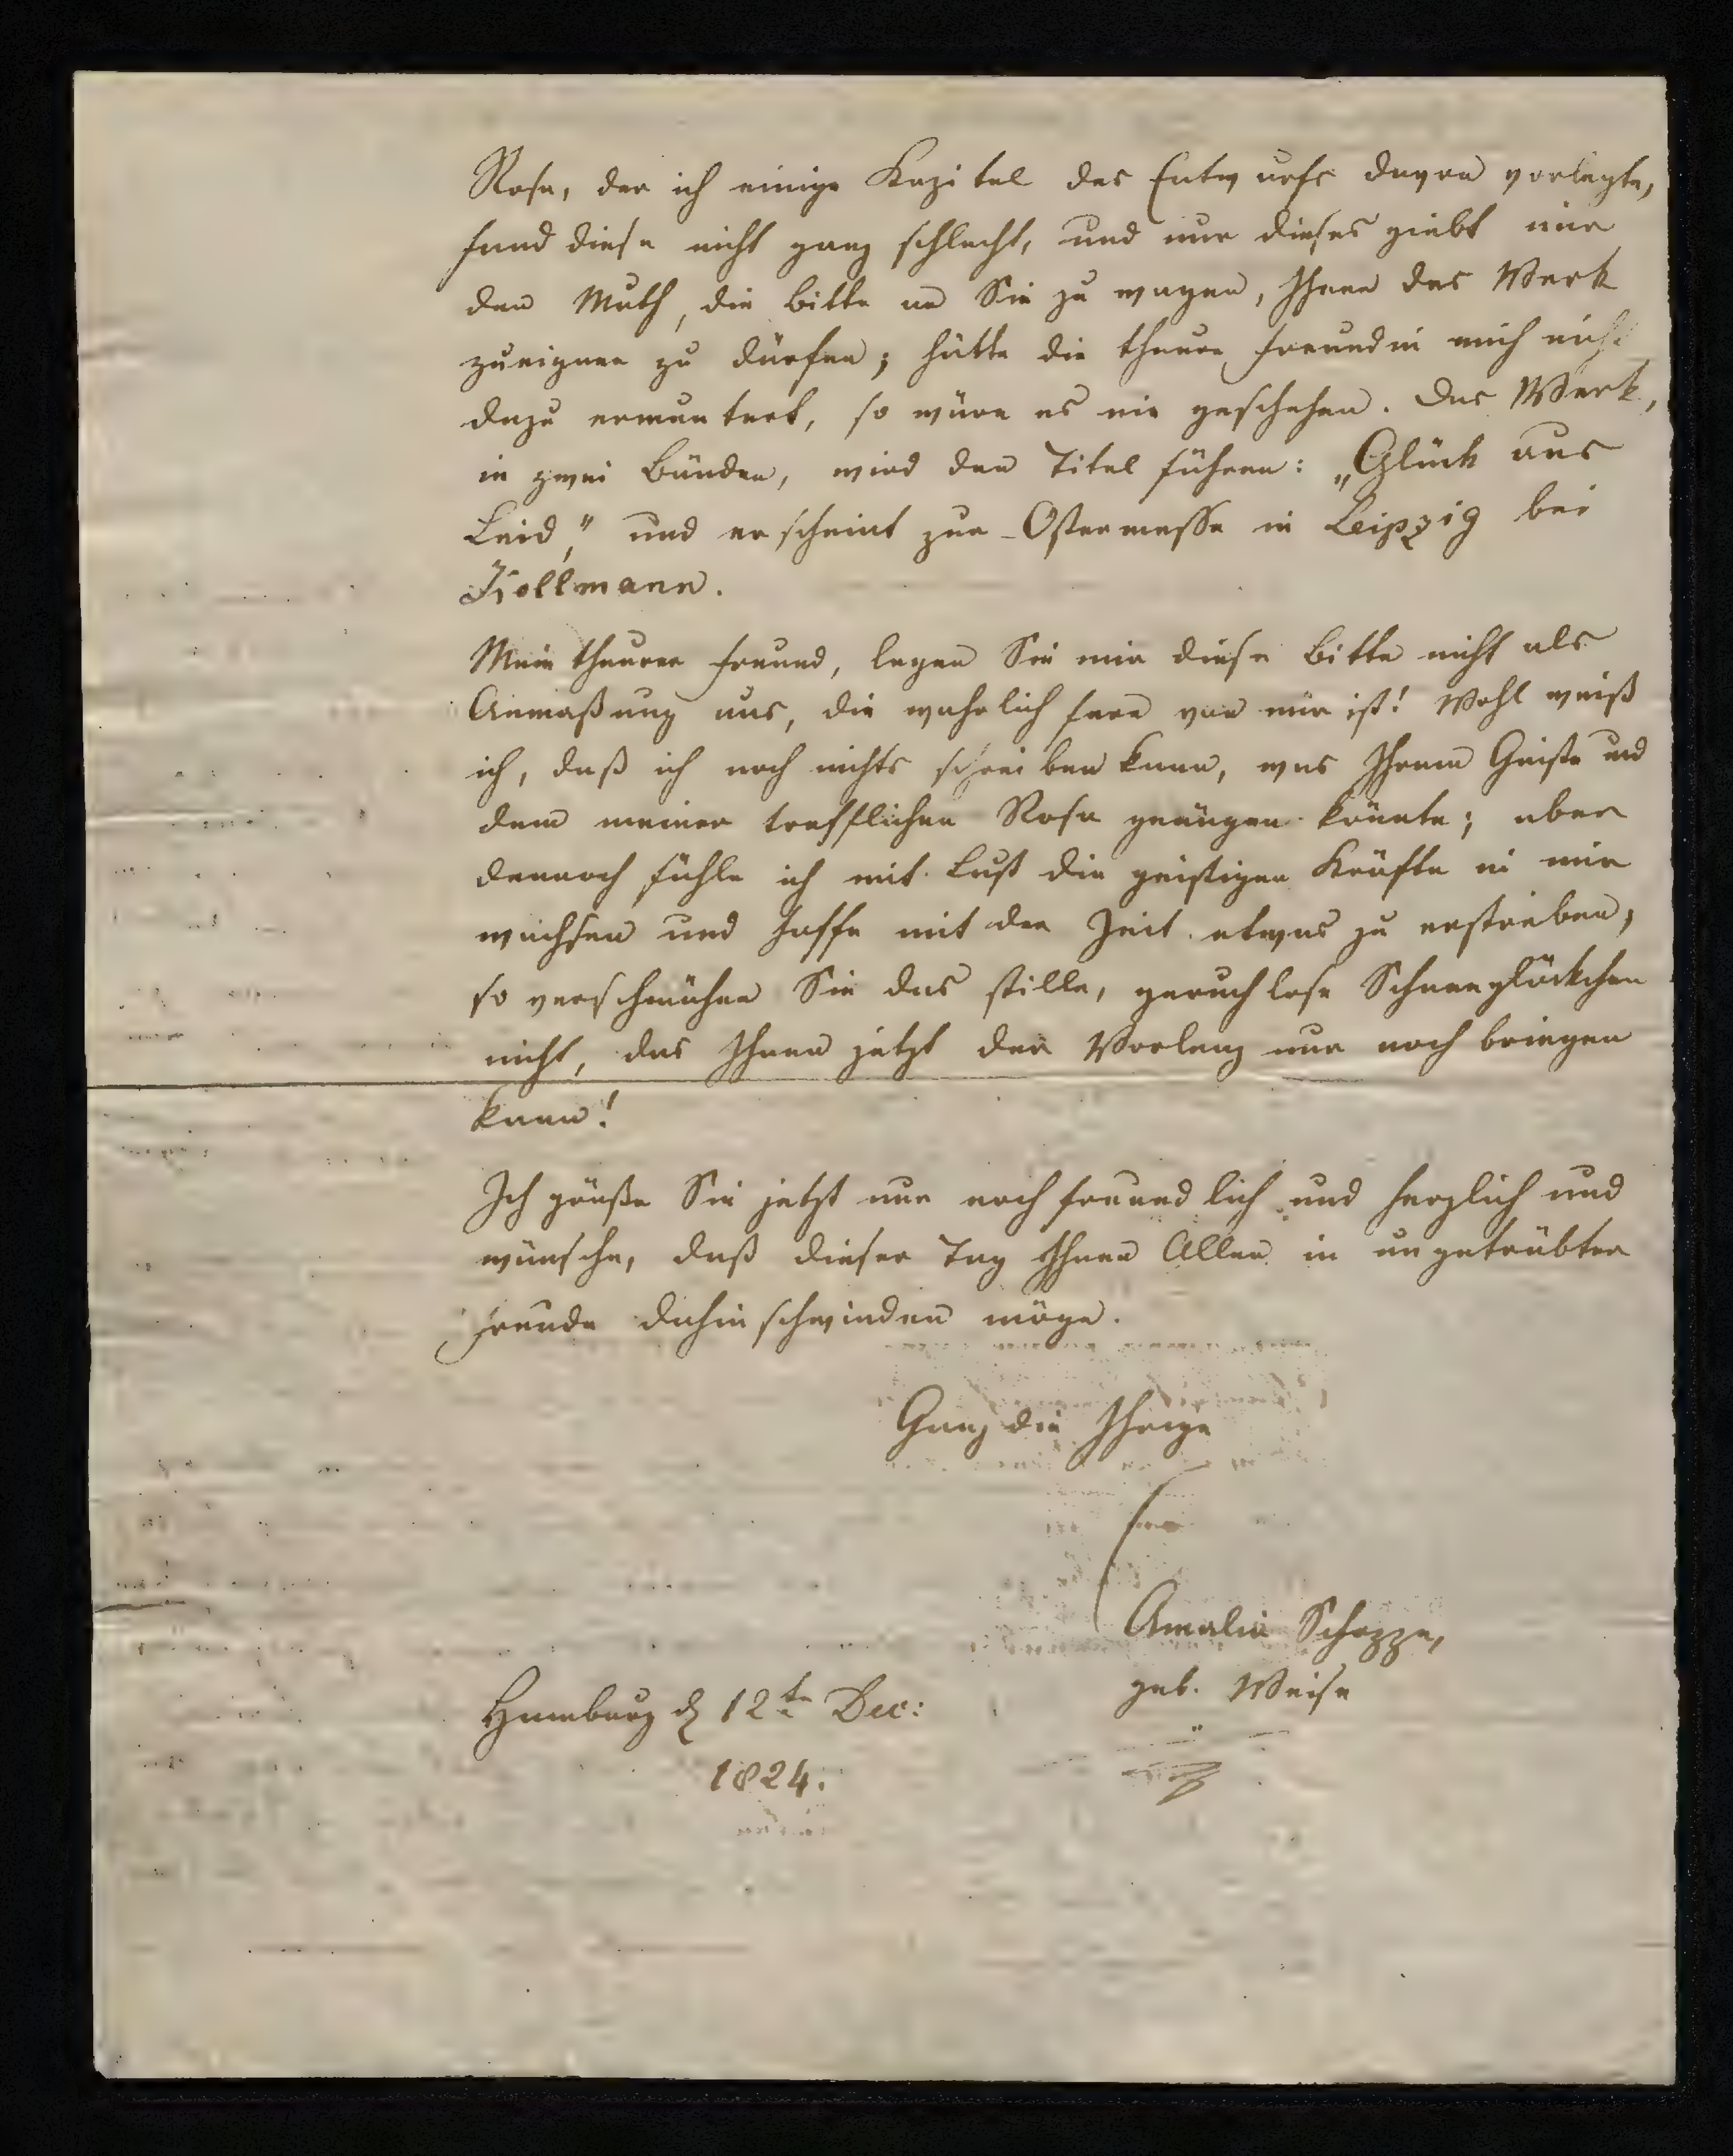 Rosa, der ich einige Kapitel des Entwurfs davon vorlegte,
fand diese nicht ganz schlecht, und nur dieses giebt mir
den Muth, die Bitte an Sie zu wagen, Ihnen das Werk
zueignen zu dürfen; hätte die theure Freundin mich nicht
dazu ermuntert, so wäre es nie geschehen. Das Werk,
in zwei Bänden, wird den Titel führen: „Glück aus
Leid," und erscheint zur Ostermesse in Leipzig bei
Kollmann.
Mein theurer Freund, legen Sie mir diese Bitte nicht als
Anmaßung aus, die wahrlich fern von mir ist! Wohl weiß
ich, daß ich noch nichts schreiben kann, was Ihrem Geiste und
dem meiner trefflichen Rosa genügen könnte; aber
dennoch fühle ich mit Lust die geistigen Kräfte in mir
wachsen und hoffe mit der Zeit etwas zu erstreben,
so verschmähen Sie das stille, geruchlose Schneeglöckchen
nicht, das Ihnen jetzt der Vorlenz nur noch bringen
kann!
Ich grüße Sie jetzt nur noch freundlich und herzlich und
wünsche, daß dieser Tag Ihnen Allen in ungetrübter
Freude dahinschwinden möge.
Ganz die Ihrige
Amalia Schoppe,
geb. Weise
Hamburg d 12te Dec:
1824.